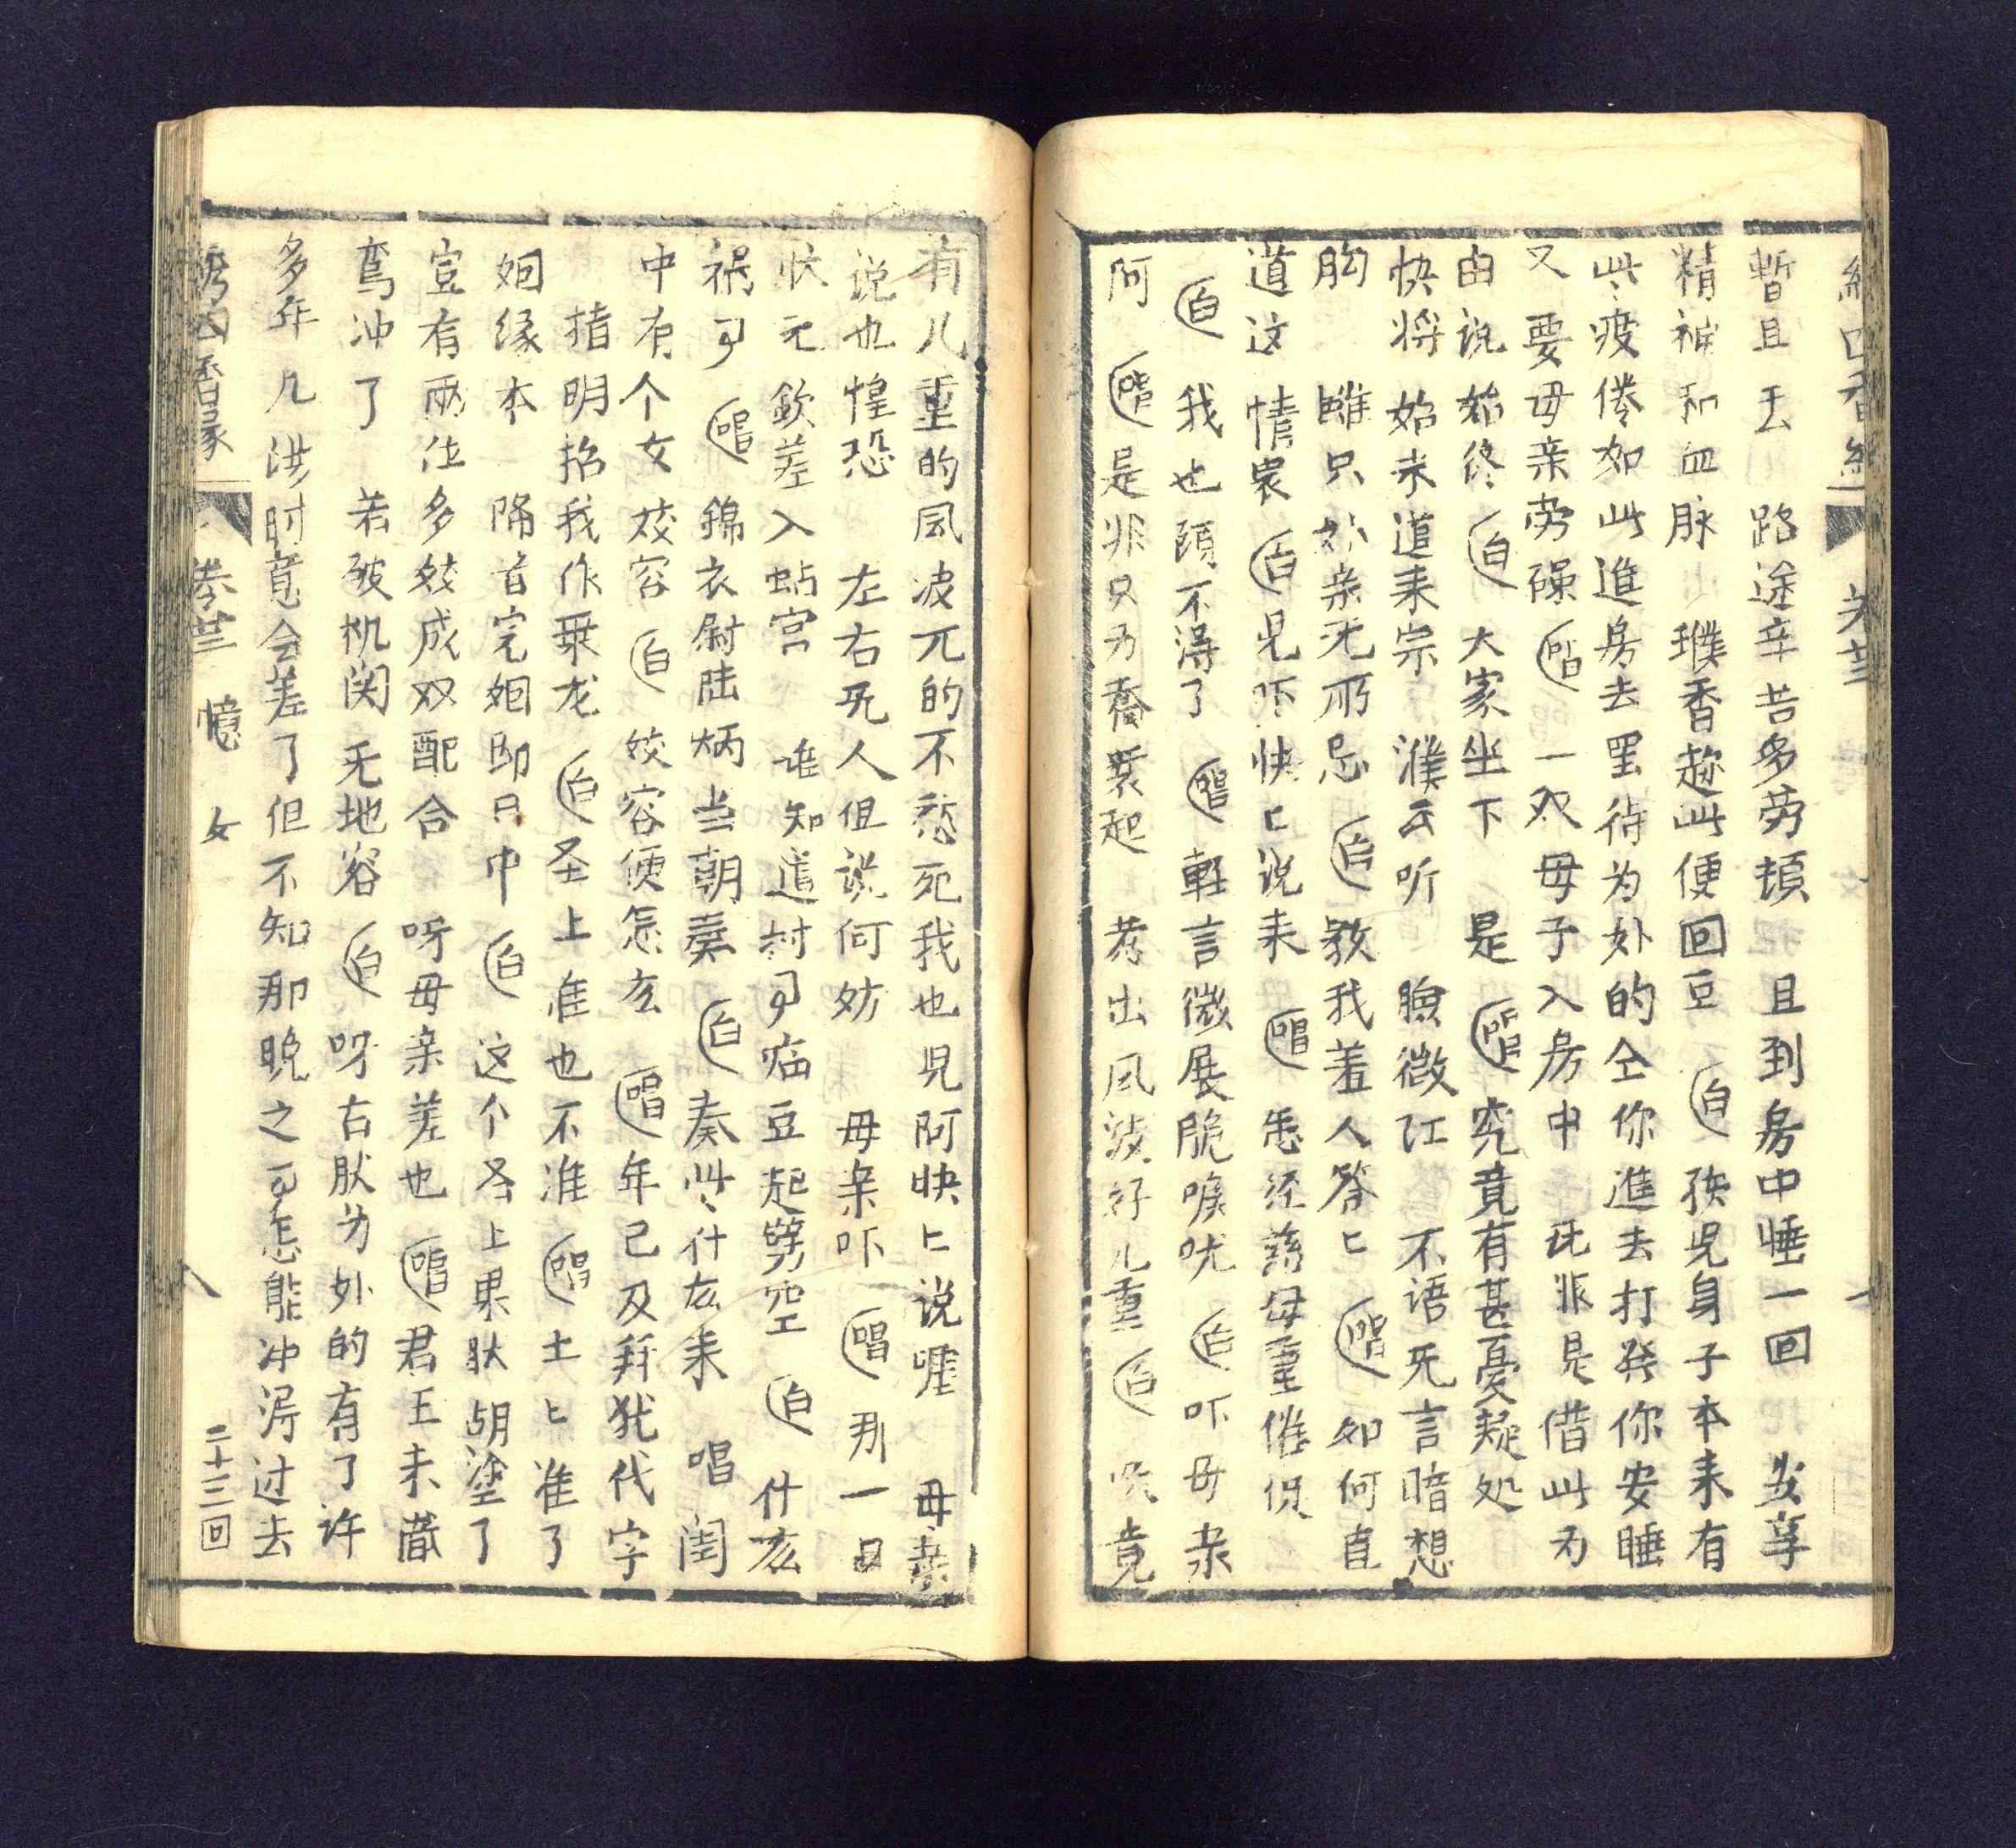 暫且丢 路途辛苦多劳頓 且到房中睡一回 安享
精神和血脉 璞香趂此便回豆 白 孩児身子本来有
些疲倦如此進房去罢待为外的仝你進去打發你安睡
又要母亲劳碌 唱 一双母子入房中 既非是借此为
由说始終 白 大家坐下 是 唱 究竟有甚憂疑処
快将始末道来宗 濮云听 臉微红 不语无言暗想
胸 雖只 亲无所忌 白 教我羞人答匕 唱 如何直
道这情衷 白 児吓快匕说来 唱 恁經慈母重催促
白 我也顾不得了 唱 輕言微展脆喉咙 白 吓母亲
阿 唱 是非只为喬裝起 惹出风波好几重 白 竟
有几重的风波兀的不愁死我也児阿快匕说嚜 母亲
说也惶恐 左右无人但说何妨 母亲吓 唱 那一日
状元欽差入蟾宫 谁知道討 临豆起劈空 白 什庅
祸 唱 錦衣尉陆炳当朝奏 白 奏些什庅来 唱 闺
中有个女姣容 白 姣容便怎庅 唱 年已及笄犹代字
指明招我作乗龙 白 圣上准也不准 唱 土匕准了
姻缘本 降旨完姻即只中 白 这个圣上果肰胡塗了
豈有两位多姣成双配合 呀母亲差也 唱 君王未識
鸾冲了 若破机関无地容 白 呀右肰为外的有了许
多年几洪时意会差了但不知那晚之 怎能冲淂过去
綉四香緣 卷廿三 憶女 二十三回